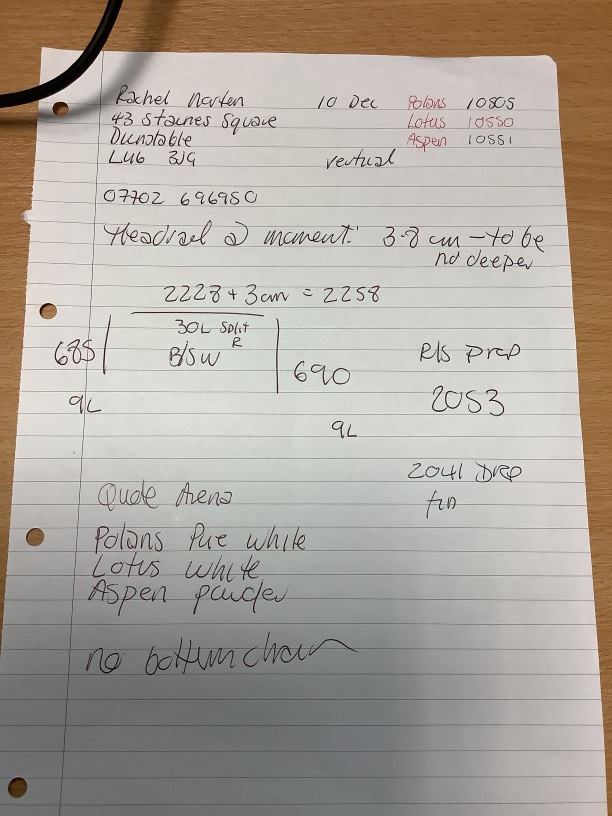 Rachel Marten 10 Dec Polaris 10805
43 Staines Square Lotus 10550
Dunstable Aspen 10551
LU6 3JG vertual
07702 696950
Headrail @ moment: 3.8 cm - to be
no deeper
2228 + 3cm = 2258
30L Split
R
685 B/SW 690 R/S Drop
9L 2053
9L
2041 Drop
Quote Arena fin
Polaris Pure white
Lotus white
Aspen powder
no bottom chain